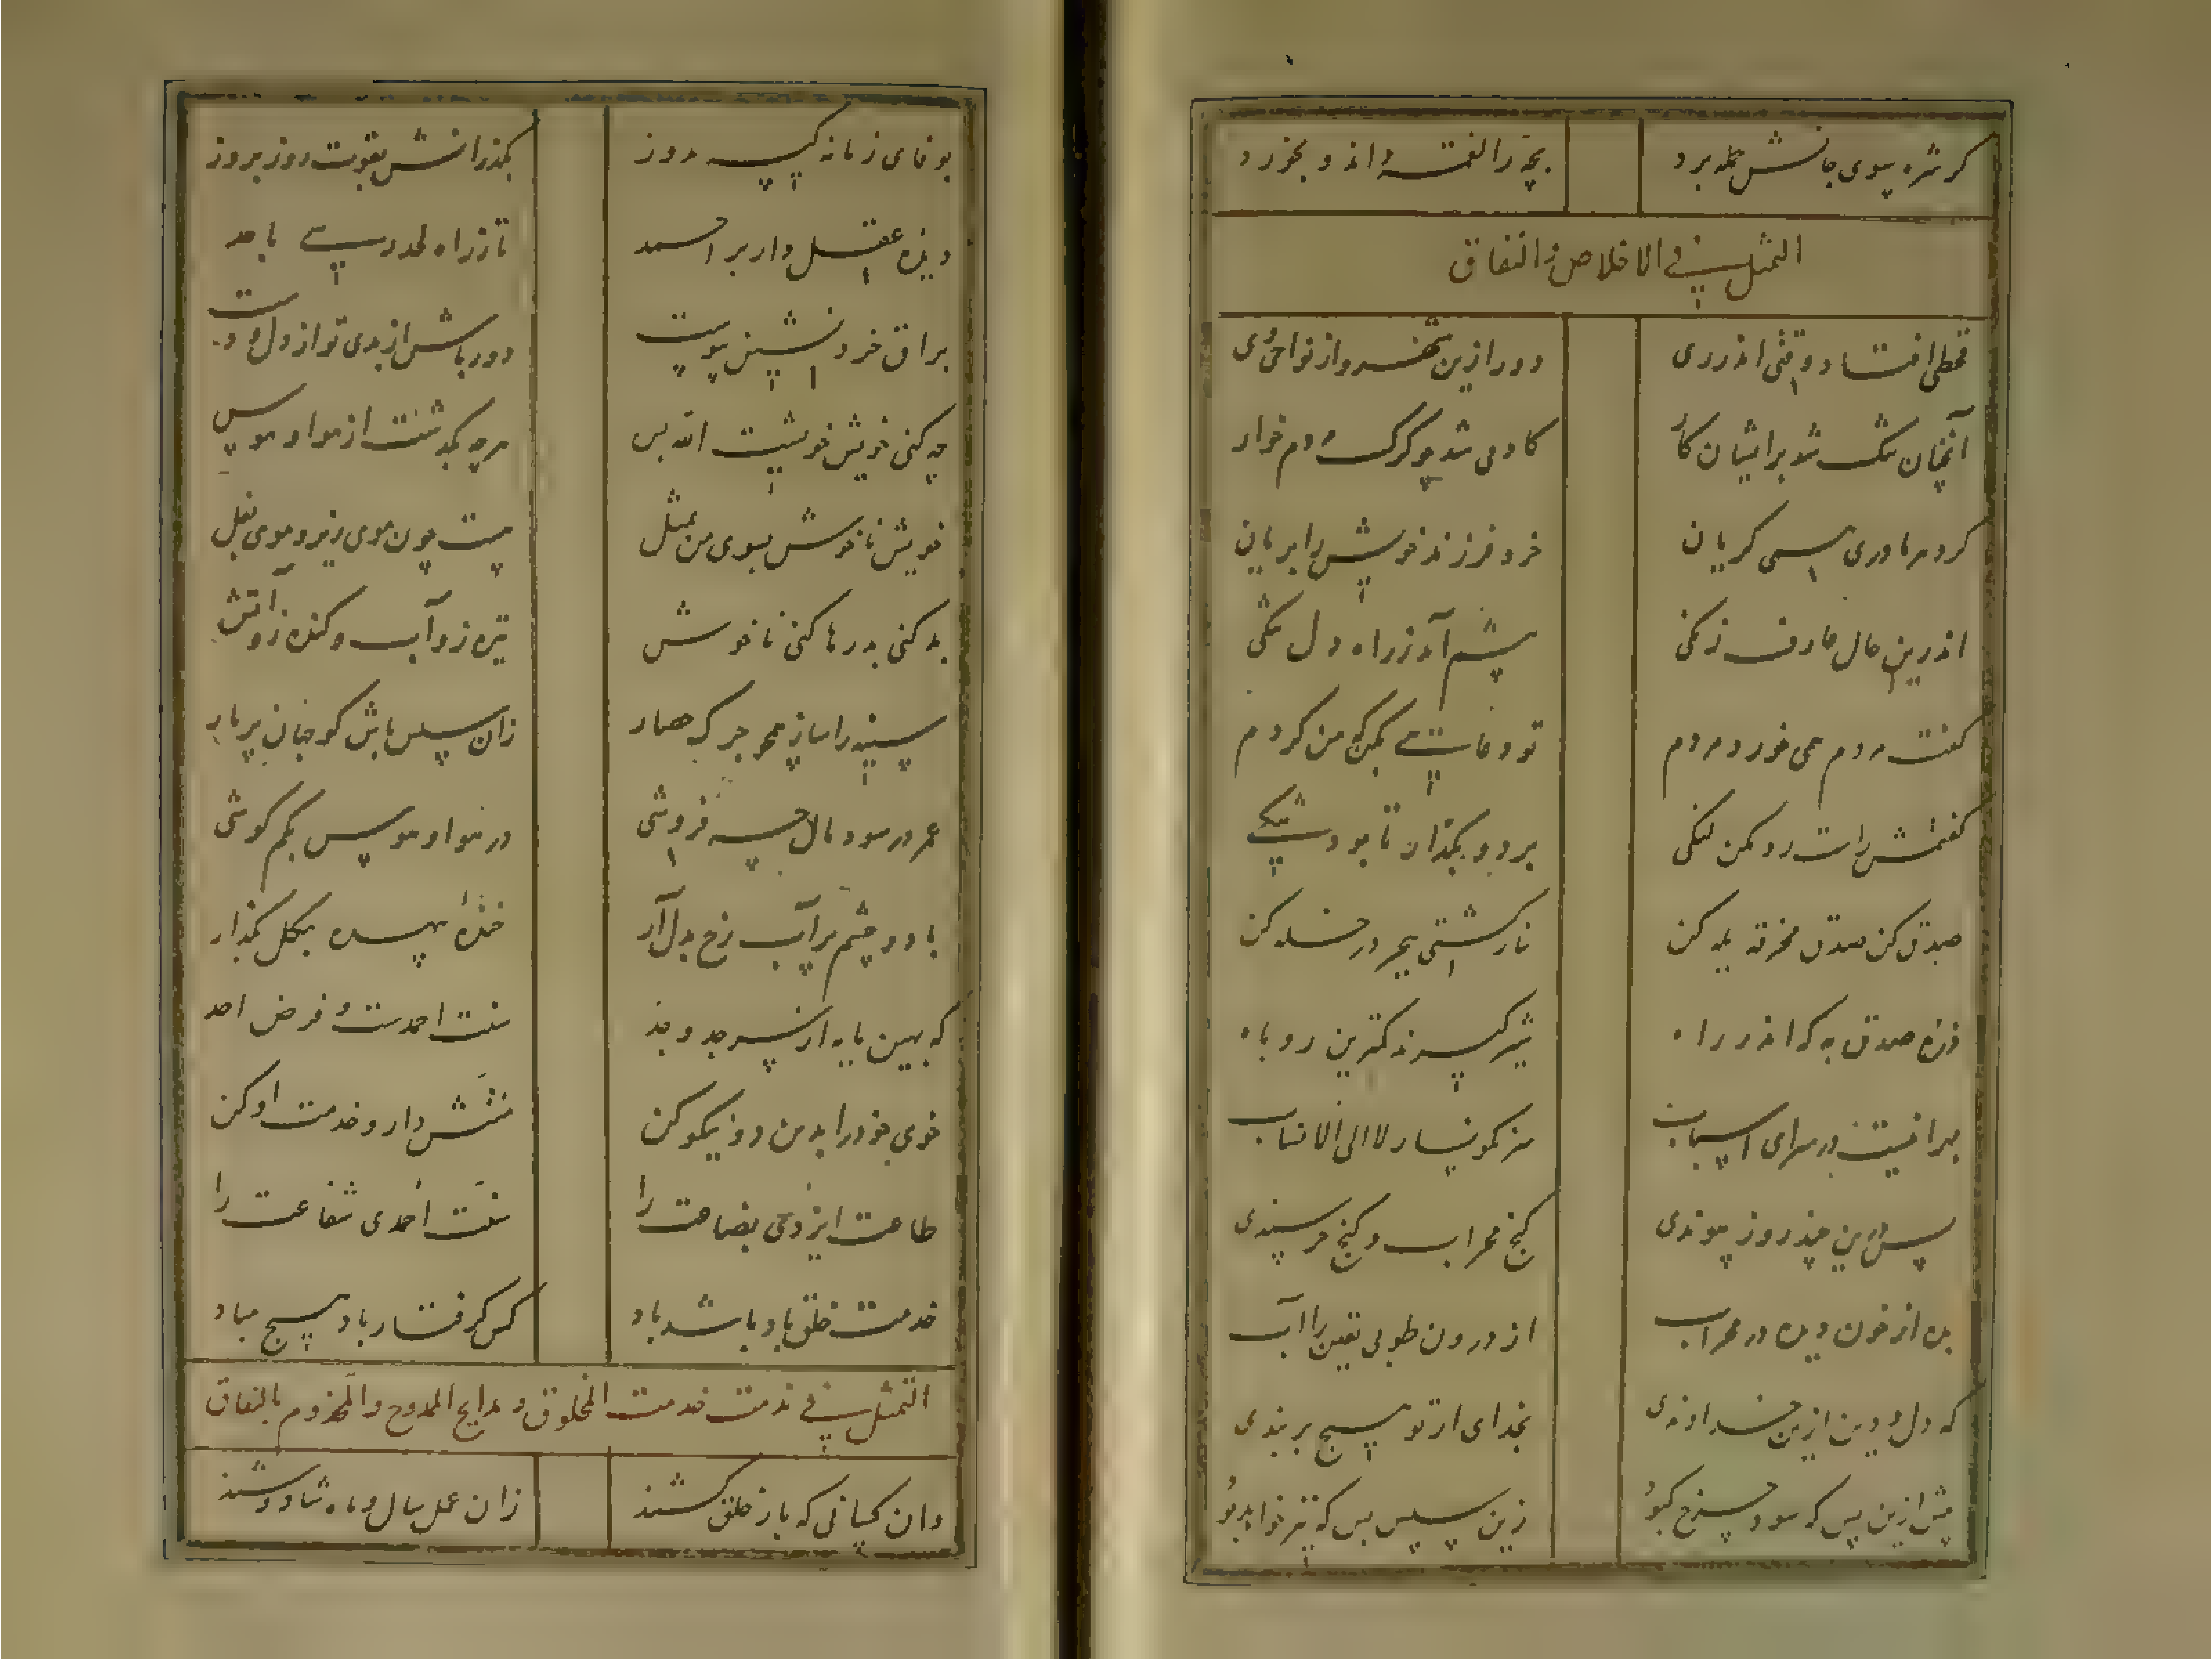 کرشره بسوی جانش حمله برد بچه را لقمه داند و بخورد
التمثیل فی الاخلاص و النفاق
قحطی افتاد وقتی اندر ری دور ازین شهر و از نواحی وی
آنچنان تنگ شد بر ایشان کار کادمی شد چو گرگ مردم خوار
کرد هر مادری همی گریان خرد فرزند خویش را بریان
اندرین حال عارف زنگی پیشم آمد ز راه دل تنگی
گفت مردم همی خورد مردم تو دعایی بکن که من کردم
گفتمش راست رو مکن لنگی برو و بگذار تا بود
صدق کن صدق مخرقه یله کن
ذره صدق به که اندر راه شیر گیرند کمترین روباه
مرا نیست در سرای اسباب
پس ازین چند روز پیوندی کنج محراب و گنج خرسندی
بده از خون دیده در محراب از درون طوبی یقین را آب
که دل و دین ازین خداوندی بخدای ار تو هیچ بربندی
پیش ازین پس که سود چرخ کبود زین سپس بس که نیز خواهد بود
بوفای زمانه کیسه مدوز بگذرانش بقوت روز بروز
دیده عقل دار بر احمد تا ز راه لحد رسی باحد
براق خرد دور باش از بدی تو از دل و دست
چه کنی خویش خویشت الله بس هرچه بگذشت از هوا و هوس
خویش ناخوش بسوی من بمثل هست چون موی زیر و موی بغل
بد کنی بد رها کنی ناخوش تیره زو آب و گنده زو آتش
سینه را ساز همچو جر که حصار زان سپس باش گو جهان پر مار
عمر در سود مال چه فروشی در هوا و هوس بکم کوشی
با دو چشم پر آب رخ بدل آر خنده بیهده بگل بگذار
که بهین پایه از پس جد و جد سنت احمدست و فرض احد
خوی خود را بد من دو نیکو کن منتش دار و خدمت او کن
طاعت ایزدی بضاعت را سنت احمدی شفاعت را
خدمت خلق باد باشد باد کس گرفتار باد هیچ مباد
التمثیل فی مذمت خدمت المخلوق و مدایح الممدوح و المخدوم بالنفاق
وان کسانی که بار خلق کشند زان عمل سال و ماه شاد و خوشند